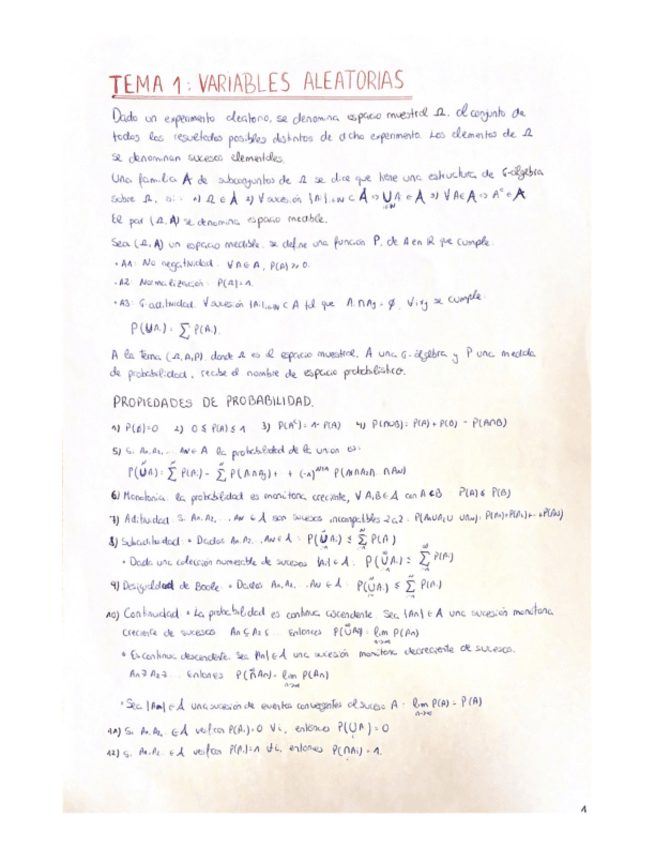 TEMA 1: VARIABLES ALEATORIAS
Dado un experimento aleatorio, se denomina espacio muestral Ω, al conjunto de
todos los resultados posibles distintos de dicho experimento. Los elementos de Ω
se denominan sucesos elementales.
Una familia A de subconjuntos de Ω se dice que tiene una estructura de σ-álgebra
sobre Ω, si: 1) Ω ∈ A 2) ∀ sucesión {Ai}i∈N ⊂ A ⇒ ∪ Ai ∈ A 3) ∀ A∈A ⇒ Aᶜ ∈ A
El par (Ω, A) se denomina espacio medible.
Sea (Ω, A) un espacio medible, se define una función P, de A en R que cumple:
• A1: No negatividad: ∀ A∈A, P(A) ≥ 0.
• A2: Normalización: P(Ω)=1.
• A3: σ-aditividad: ∀ sucesión {Ai}i∈N ⊂ A tal que Ai∩Aj = ∅, ∀ i≠j se cumple:
P(∪Ai) = Σ P(Ai).
A la terna (Ω, A, P), donde Ω es el espacio muestral, A una σ-álgebra y P una medida
de probabilidad, recibe el nombre de espacio probabilístico.
PROPIEDADES DE PROBABILIDAD.
1) P(∅)=0 2) 0 ≤ P(A) ≤ 1 3) P(Aᶜ) = 1- P(A) 4) P(A∪B) = P(A) + P(B) - P(A∩B)
5) Si A1, A2, ... AN ∈ A la probabilidad de la unión es:
P(∪Ai) = Σ P(Ai) - Σ P(Ai∩Aj) + + (-1)ᴺ⁺¹ P(A1∩A2∩ ∩AN)
6) Monotonía: la probabilidad es monótona creciente, ∀ A,B ∈ A con A⊂B P(A) ≤ P(B)
7) Aditividad: Si A1, A2, ... AN ∈ A son sucesos incompatibles 2 a 2: P(A1∪A2∪ ∪AN) = P(A1)+P(A2)+...+P(AN)
8) Subaditividad: • Dados A1, A2, ..., AN ∈ A : P(∪Ai) ≤ Σ P(Ai)
• Dada una colección numerable de sucesos {Ai} ∈ A. P(∪Ai) ≤ Σ P(Ai)
9) Desigualdad de Boole: • Dados A1, A2, ... AN ∈ A : P(∪Ai) ≤ Σ P(Ai)
10) Continuidad • La probabilidad es continua ascendente. Sea {An} ∈ A una sucesión monótona
creciente de sucesos A1 ⊆ A2 ⊆ ... Entonces P(∪An) = lim P(An)
• Es continua descendente. Sea {An} ∈ A una sucesión monótona decreciente de sucesos.
A1 ⊇ A2 ⊇ ... Entonces P(∩An) = lim P(An)
• Sea {An} ∈ A una sucesión de eventos convergentes al suceso A : lim P(A) = P(A)
11) Si A1, A2, ∈ A verifican P(Ai)=0 ∀i, entonces P(∪Ai) = 0
12) Si A1, A2 ∈ A verifican P(Ai)=1 ∀i, entonces P(∩Ai) = 1.
1